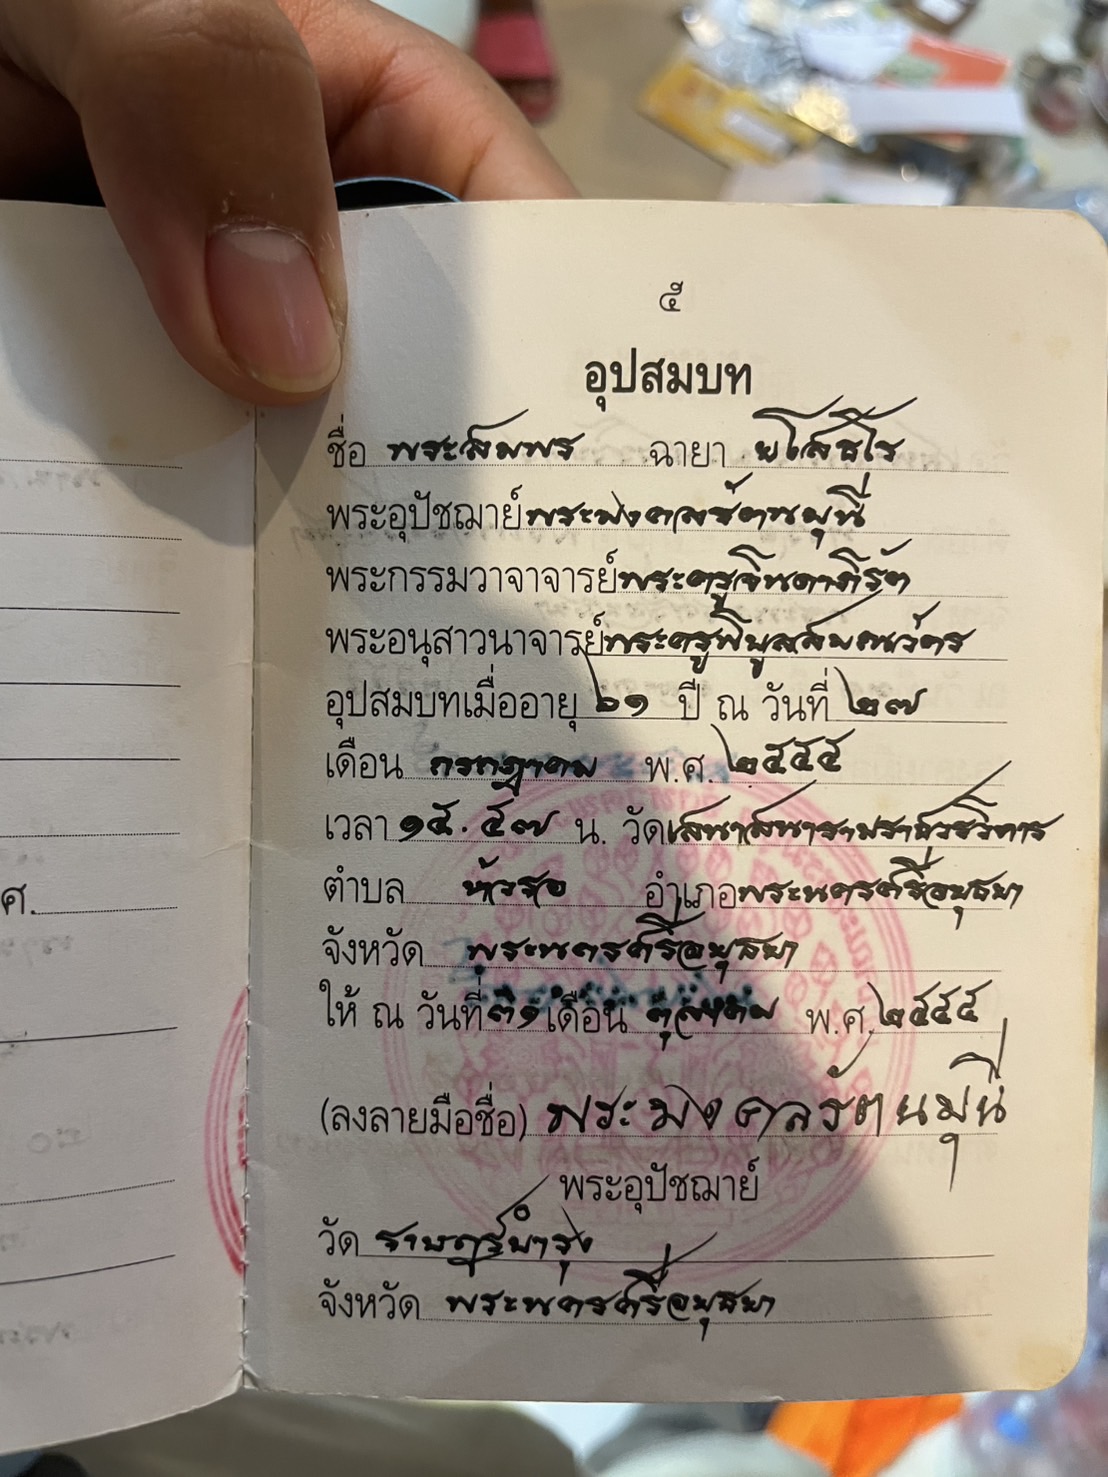 ๕
อุปสมบท
ชื่อ พระสมพร ฉายา ยโสธโร
พระอุปัชฌาย์ พระมงคลรัตนมุนี
พระกรรมวาจาจารย์ พระครูจินดาภิรัต
พระอนุสาวนาจารย์ พระครูพิบูลสมณวัตร
อุปสมบทเมื่ออายุ ๖๑ ปี ณ วันที่ ๒๗
เดือน กรกฎาคม พ.ศ. ๒๕๕๕
เวลา ๑๕.๔๗ น. วัดเสนาสนารามราชวรวิหาร
ตำบล หัวรอ อำเภอพระนครศรีอยุธยา
จังหวัด พระนครศรีอยุธยา
ให้ ณ วันที่ ๓๑ เดือน ตุลาคม พ.ศ. ๒๕๕๕
(ลงลายมือชื่อ) พระมงคลรัตนมุนี
พระอุปัชฌาย์
วัด ราษฎร์บำรุง
จังหวัด พระนครศรีอยุธยา
ศ.